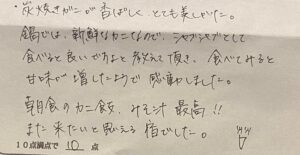 ・炭焼きガニが香ばしく、とても美しかった。
鍋では、新鮮なカニなので、シャブシャブとして
食べると良いですよと教えて頂き、食べてみると
甘味が増したようで感動しました。
朝食のカニ飯、みそ汁 最高!!
また来たいと思える宿でした。
10点満点で 10 点